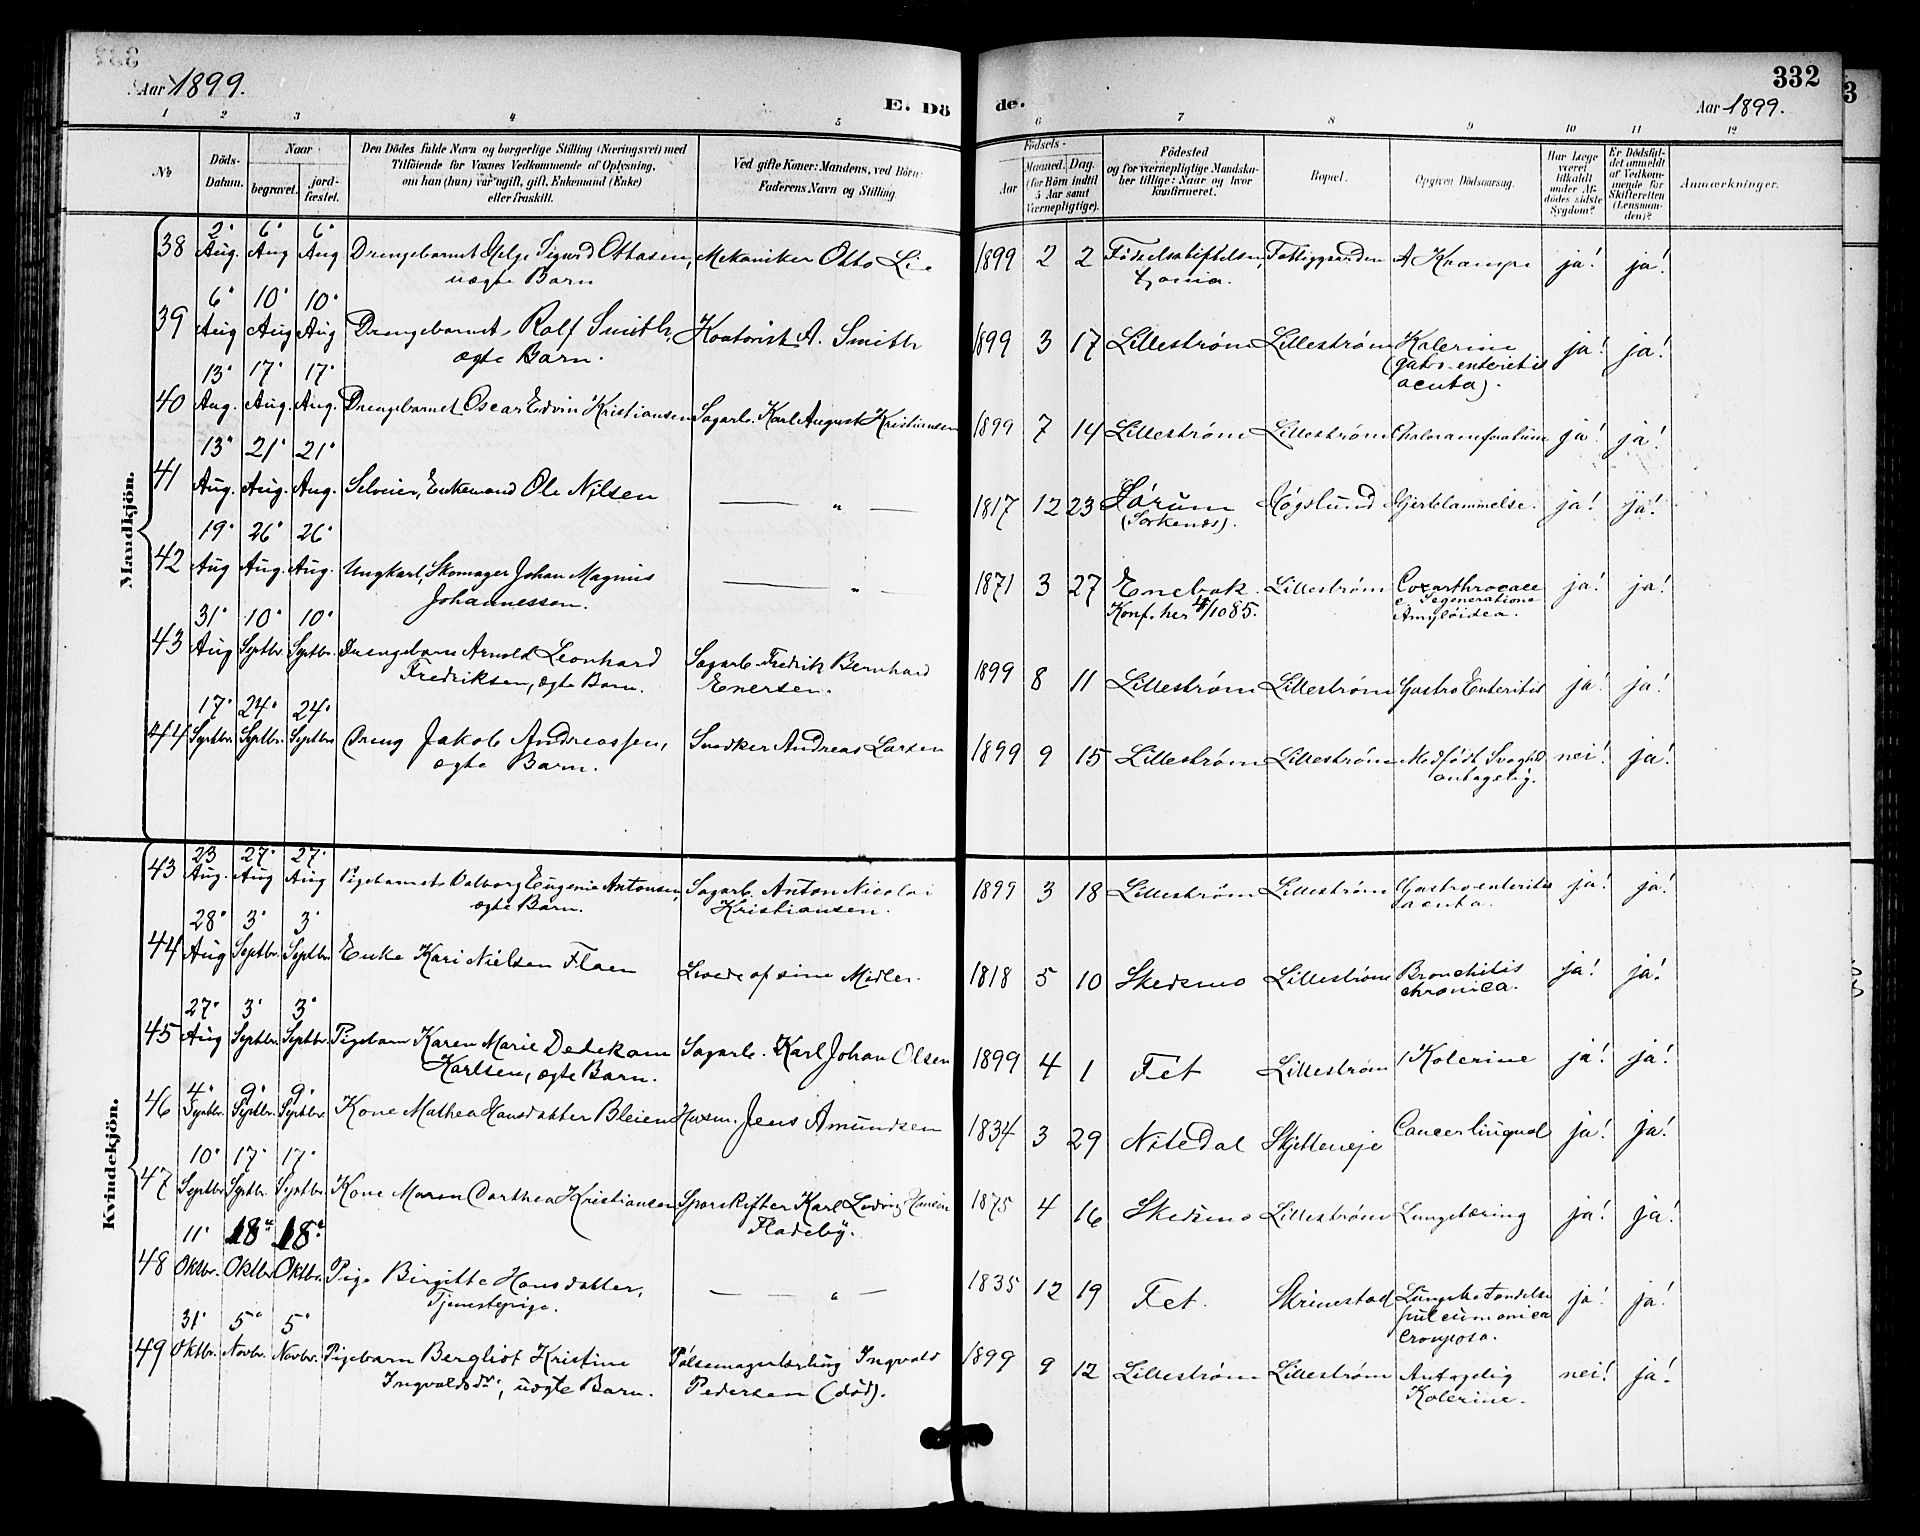 Aar 1899.
E. Dö
de.
332
Aar 1899.
1 2 3 4 5 6 7 8 9 10 11 12
No
Döds-
Datum.
Naar
begravet.
jord-
fæstet.
Den Dödes fulde Navn og borgerlige Stilling (Næringsvei) med
Tilföiende for Voxnes Vedkommende af Oplysning,
om han (hun) var ugift, gift, Enkemand (Enke)
eller fraskilt.
Ved gifte Koner: Mandens, ved Börn:
Faderens Navn og Stilling.
Födsels-
Aar
Maaned. Dag.
(for Börn indtil
5 Aar samt
Værnepligtige).
Födested
og for værnepligtige Mandska-
ber tillige: Naar og hvor
konfirmeret.
Bopæl.
Opgiven Dödsaarsag.
Har Læge
været
tilkaldt
under Af-
dödes sidste
Sygdom?
Er Dödsfal-
det anmeldt
af Vedkom-
mende for
Skifteretten
(Lensman-
den)?
Anmærkninger.
Mandkjön.
38 2' Aug. 6' Aug 6' Aug Drengebarnet Helge Sigurd Ottosen, Mekaniker Otto Lie 1899 2 2 Fødselsstiftelsen, Fattiggaarden Krampe ja! ja!
uægte Barn
39 6' Aug 10' Aug 10' Aug Drengebarnet Rolf Smith, Kontorist A. Smith 1899 3 17 Lillestrøm Lillestrøm Kolerine ja! ja!
ægte Barn. (gatro-enteritis
acuta).
40 13' Aug. 17' Aug. 17' Aug. Drengebarnet Oscar Edvin Kristiansen Sagarb. Karl August Kristiansen 1899 7 14 Lillestrøm Lillestrøm ja! ja!
41 13' Aug. 21' Aug. 21' Aug. Selveier, Enkemand Ole Nilsen — „ — 1817 12 23 Sørum Høgslund Hjertelammelse. ja! ja!
(Sorkenæs).
42 19' Aug 26' Aug. 26' Aug. Ungkarl, Skomager Johan Magnus — „ — 1871 3 27 Enebak. Lillestrøm Coxarthrocace ja! ja!
Johannessen. Konf. her 4/10 85. c. Degeneratione
Amyloidea.
43 31' Aug 10' Septbr. 10' Septbr. Drengebarn Arnold Leonhard Sagarb. Fredrik Bernhard 1899 8 11 Lillestrøm Lillestrøm Gastro Enteritis ja! ja!
Fredriksen, ægte Barn. Enersen.
44 17' Septbr. 24' Septbr. 24' Septbr. Dreng Jakob Andreassen, Snedker Andreas Larsen 1899 9 15 Lillestrøm Lillestrøm Medfødt Svaghed nei! ja!
ægte Barn. antagelig.
Kvindekjön.
43 23 Aug. 27' Aug 27' Aug Pigebarnet Valborg Eugenie Antonsen, Sagarb. Anton Nicolai 1899 3 18 Lillestrøm Lillestrøm Gastro enteritis ja! ja!
ægte Barn. Kristiansen. acuta.
44 28' Aug 3' Septbr. 3' Septbr. Enke Kari Nielsen Flaen Levede af sine Midler. 1818 5 10 Skedsmo Lillestrøm Bronchitis ja! ja!
chronica.
45 27' Aug 3' Septbr. 3' Septbr. Pigebarn Karen Marie Dedekam Sagarb. Karl Johan Olsen 1899 4 1 Fet Lillestrøm Kolerine ja! ja!
Karlsen, ægte Barn.
46 4' Septbr. 9' Septbr. 9' Septbr. Kone Mathea Hansdatter Bleien Husm. Jens Amundsen 1834 3 29 Nitedal Skjetteneje Cancer lingual ja! ja!
47 10' Septbr. 17' Septbr. 17' Septbr. Kone Maren Dorthea Kristiansen Sporskifter Karl Ludvig Hansen 1875 4 16 Skedsmo Lillestrøm Lungetæring ja! ja!
Fladeby.
48 11' Oktbr. 18' Oktbr 18' Oktbr. Pige Birgitte Hansdatter, — „ — 1835 12 19 Fet. Skrinestad Lungebetændelse ja! ja!
Tjenestepige. crouposa.
49 31' Oktbr. 5' Novbr. 5' Novbr. Pigebarn Bergliot Kristine Pølsemagerlærling Ingvald 1899 9 12 Lillestrøm Lillestrøm Antagelig nei! ja!
Ingvaldsdr., uægte Barn. Pedersen (død). Kolerine.